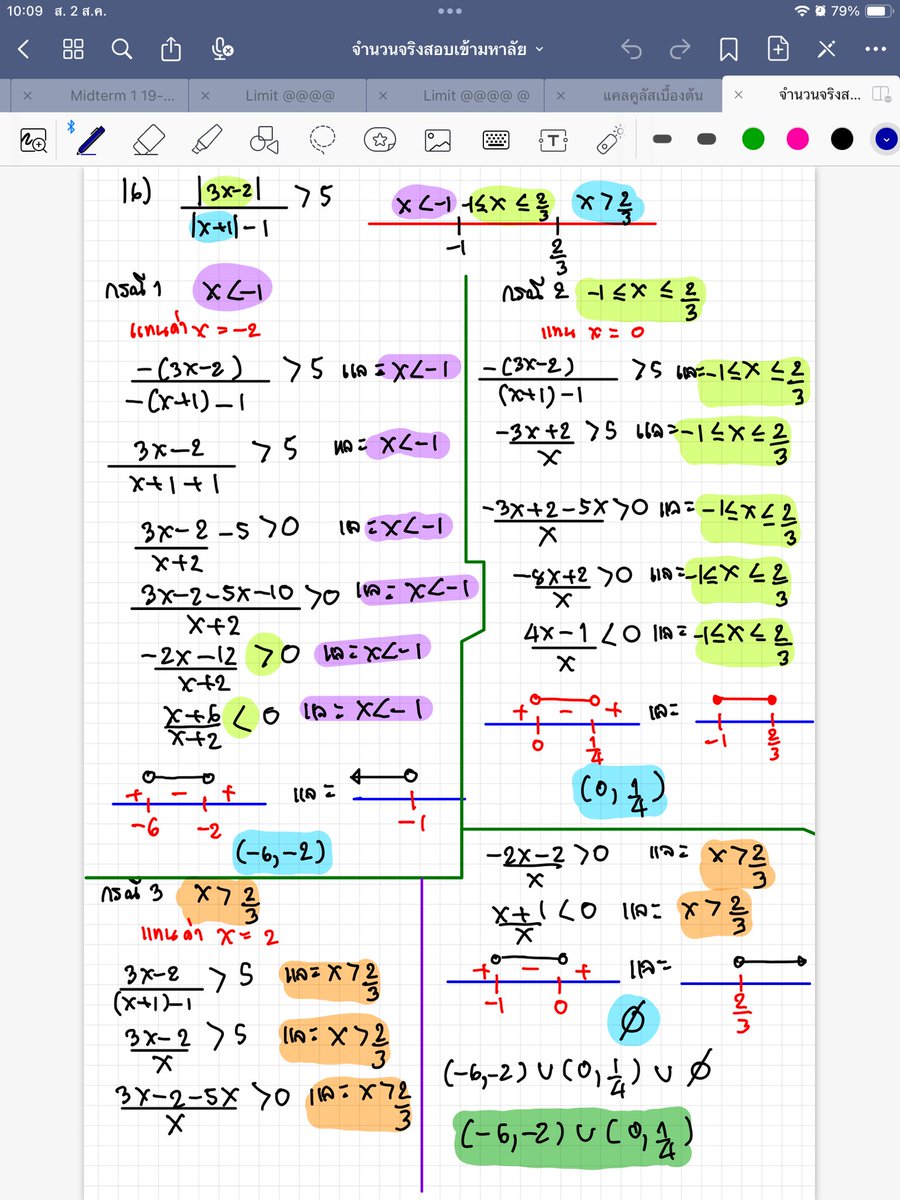 10:09 ส. 2 ส.ค.
79%
จำนวนจริงสอบเข้ามหาลัย
Midterm 1 19-...
Limit @@@@
Limit @@@@ @
แคลคูลัสเบื้องต้น
จำนวนจริงส...
16) |3x-2| / (|x+1| - 1) > 5
x < -1   -1 ≤ x ≤ 2/3   x > 2/3
-1   2/3
กรณี 1   x < -1
แทนค่า x = -2
-(3x-2) / (-(x+1) - 1) > 5 และ x < -1
(3x-2) / (x+1+1) > 5 และ x < -1
(3x-2) / (x+2) - 5 > 0 และ x < -1
(3x-2-5x-10) / (x+2) > 0 และ x < -1
(-2x-12) / (x+2) > 0 และ x < -1
(x+6) / (x+2) < 0 และ x < -1
+ - + และ
-6 -2 -1
(-6, -2)
กรณี 2   -1 ≤ x ≤ 2/3
แทน x = 0
-(3x-2) / ((x+1) - 1) > 5 และ -1 ≤ x ≤ 2/3
(-3x+2) / x > 5 และ -1 ≤ x ≤ 2/3
(-3x+2-5x) / x > 0 และ -1 ≤ x ≤ 2/3
(-8x+2) / x > 0 และ -1 ≤ x ≤ 2/3
(4x-1) / x < 0 และ -1 ≤ x ≤ 2/3
+ - + และ
0 1/4 -1 2/3
(0, 1/4)
กรณี 3   x > 2/3
แทนค่า x = 2
(3x-2) / ((x+1)-1) > 5 และ x > 2/3
(3x-2) / x > 5 และ x > 2/3
(3x-2-5x) / x > 0 และ x > 2/3
(-2x-2) / x > 0 และ x > 2/3
(x+1) / x < 0 และ x > 2/3
+ - + และ
-1 0 2/3
∅
(-6,-2) ∪ (0, 1/4) ∪ ∅
(-6,-2) ∪ (0, 1/4)